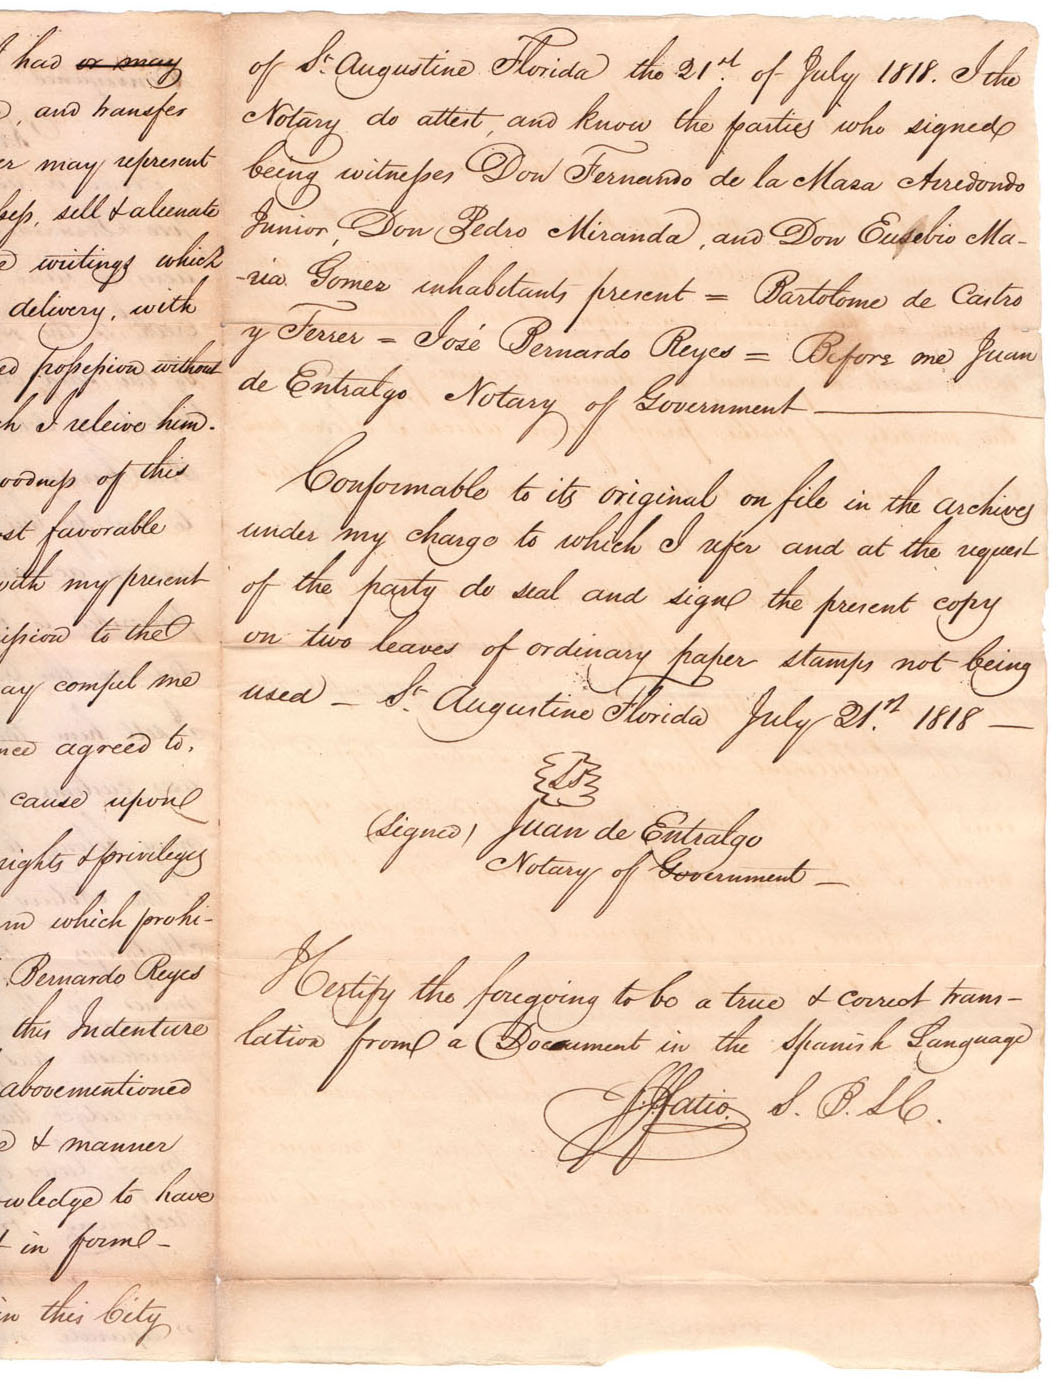 I had or may
, and transfer
er may represent
sess, sell & alienate
writings which
delivery, with
ed possession without
h I releive him.
oodness of this
st favorable
with my present
ission to the
ay compel me
nce agreed to,
cause upon
rights & privileges
m which prohi-
Bernardo Reyes
this Indenture
abovementioned
e & manner
owledge to have
t in form –
in this City
of St Augustine Florida the 21st of July 1818. I the
Notary do attest, and know the parties who signed
being witnesses Don Fernando de la Maza Arredondo
Junior, Don Pedro Miranda, and Don Eusebio Ma-
-ria Gomez inhabitants present = Bartolome de Castro
y Ferrer = José Bernardo Reyes = Before me Juan
de Entralgo Notary of Government —
Conformable to its original on file in the archives
under my charge to which I refer and at the request
of the party do seal and sign the present copy
on two leaves of ordinary paper stamps not being
used – St Augustine Florida July 21st 1818 –
LS
(Signed) Juan de Entralgo
Notary of Government –
I Certify the foregoing to be a true & correct trans-
lation from a Document in the Spanish Language
F. J. Fatio. S. B. L C.